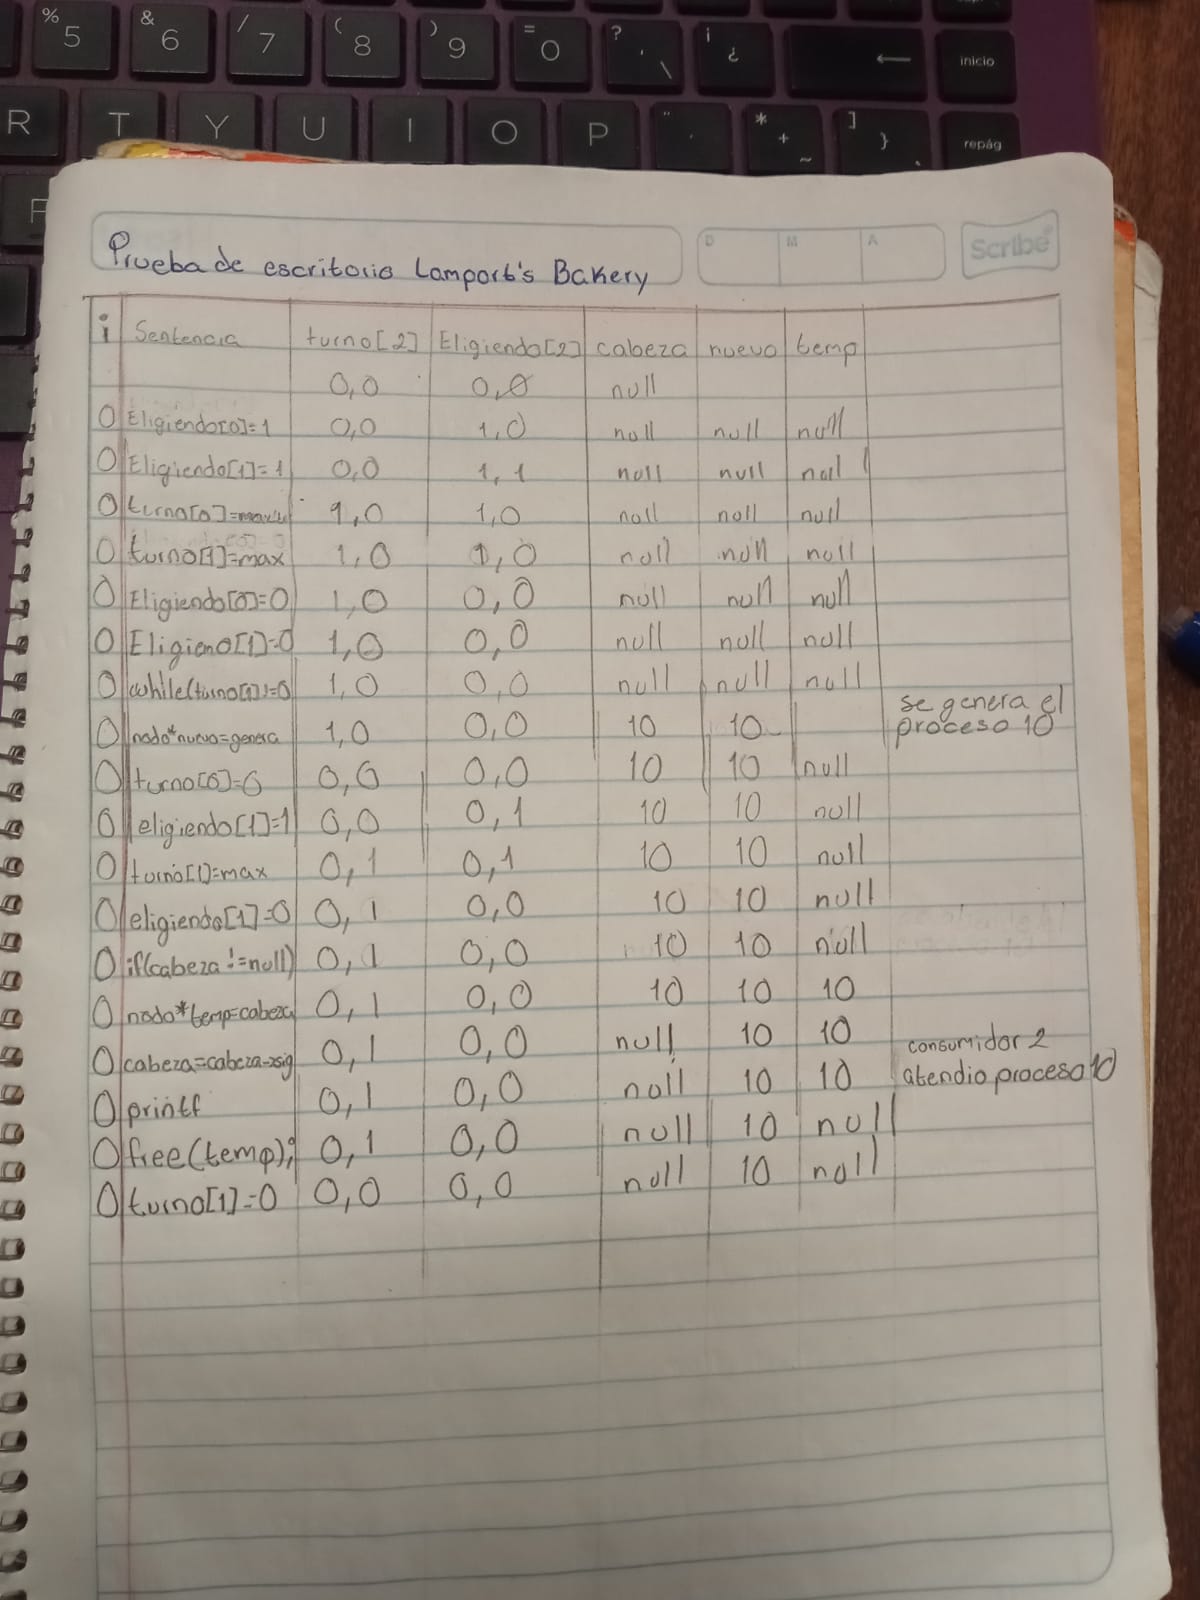 % 5 & 6 / 7 ( 8 ) 9 = 0 ? ' \ ¡ ¿ ← inicio
R T Y U I O P ¨ * + ~ ] } repág
Prueba de escritorio Lamport's Bakery
D M A
Scribe
i Sentencia turno[2] Eligiendo[2] cabeza nuevo temp
0,0 0,0 null
0 Eligiendo[0]=1 0,0 1,0 null null null
0 Eligiendo[1]=1 0,0 1,1 null null null
0 turno[0]=max 1,0 1,0 null null null
0 turno[1]=max 1,0 1,0 null null null
0 Eligiendo[0]=0 1,0 0,0 null null null
0 Eligieno[1]=0 1,0 0,0 null null null
0 while(turno[1]!=0 1,0 0,0 null null null
0 nodo*nuevo=genera 1,0 0,0 10 10 se genera el
proceso 10
0 turno[0]=0 0,0 0,0 10 10 null
0 eligiendo[1]=1 0,0 0,1 10 10 null
0 turno[1]=max 0,1 0,1 10 10 null
0 eligiendo[1]=0 0,1 0,0 10 10 null
0 if(cabeza!=null) 0,1 0,0 10 10 null
0 nodo*temp=cabeza 0,1 0,0 10 10 10
0 cabeza=cabeza->sig 0,1 0,0 null 10 10 consumidor 2
0 printf 0,1 0,0 null 10 10 atendio proceso 10
0 free(temp); 0,1 0,0 null 10 null
0 turno[1]=0 0,0 0,0 null 10 null